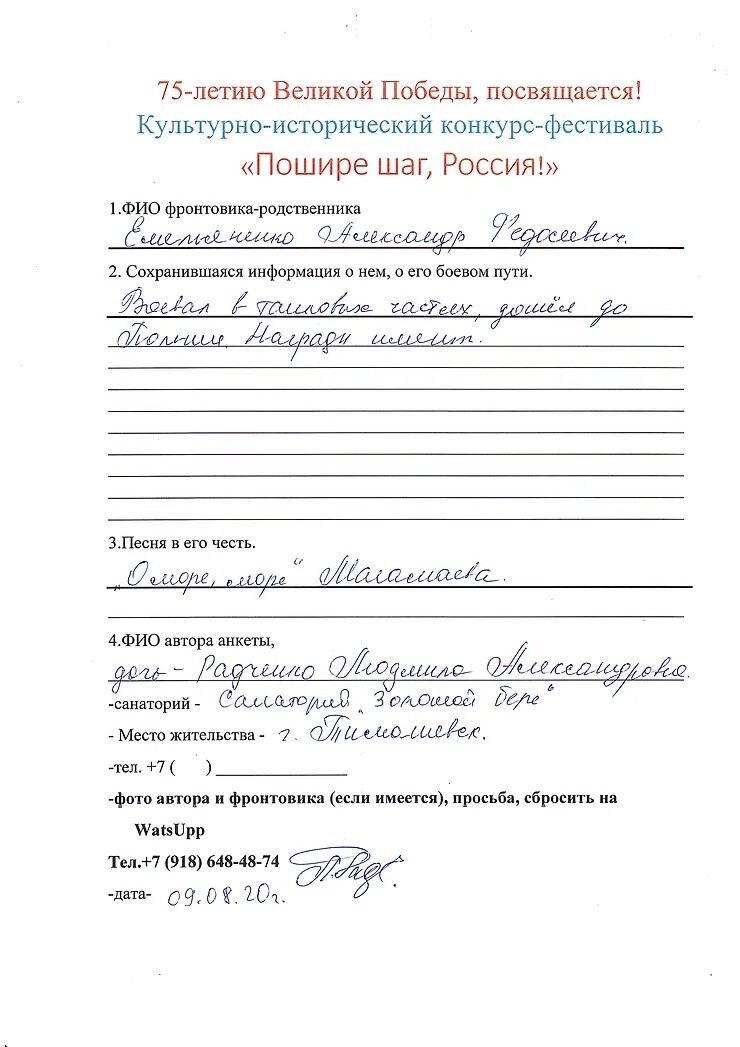 75-летию Великой Победы, посвящается!
Культурно-исторический конкурс-фестиваль
«Пошире шаг, Россия!»
1.ФИО фронтовика-родственника
Емельяненко Александр Федосеевич.
2. Сохранившаяся информация о нем, о его боевом пути.
Воевал в танковых частях, дошёл до
Польши. Награды имеет.
3.Песня в его честь.
„О море, море" Магамаева.
4.ФИО автора анкеты,
дочь - Радченко Людмила Александровна.
-санаторий - Санаторий „Золотой бере"
- Место жительства - г. Тимашевск.
-тел. +7 ( ) _______________
-фото автора и фронтовика (если имеется), просьба, сбросить на
WatsUpp
Тел.+7 (918) 648-48-74
-дата- 09.08.20г.